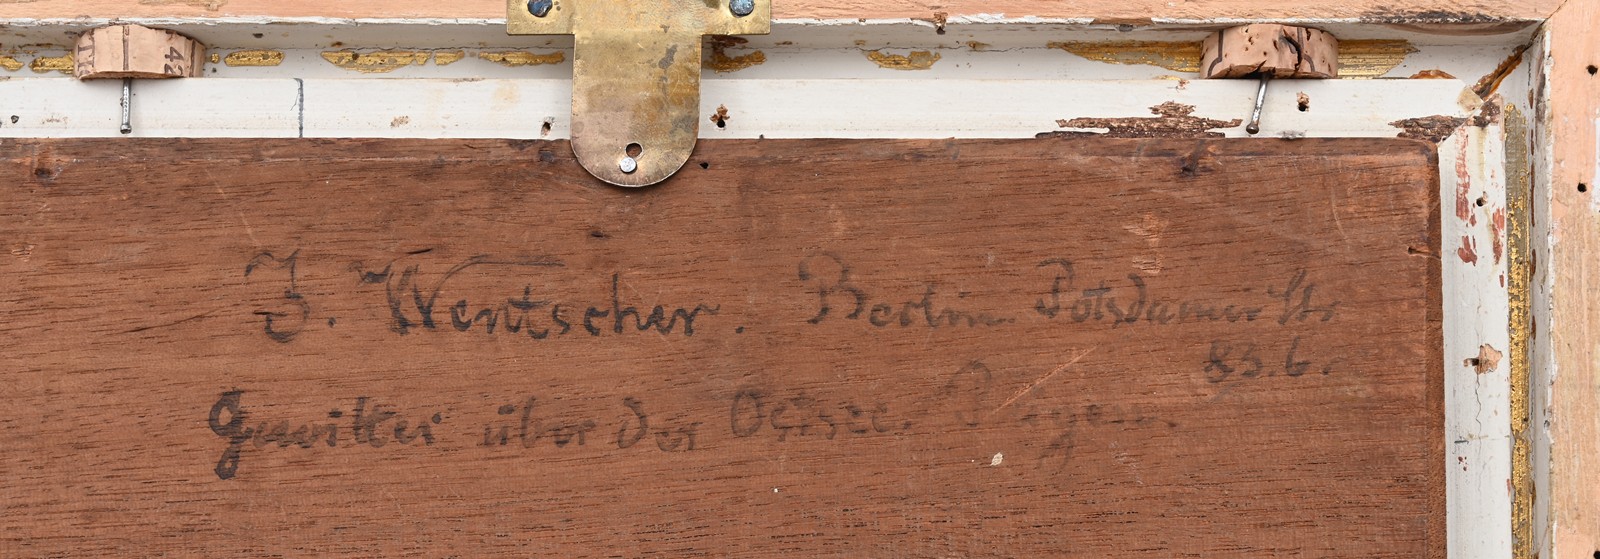 42
J. Wentscher. Berlin Potsdamer Str
83.b.
Gewitter über der Ostsee. Rügen.